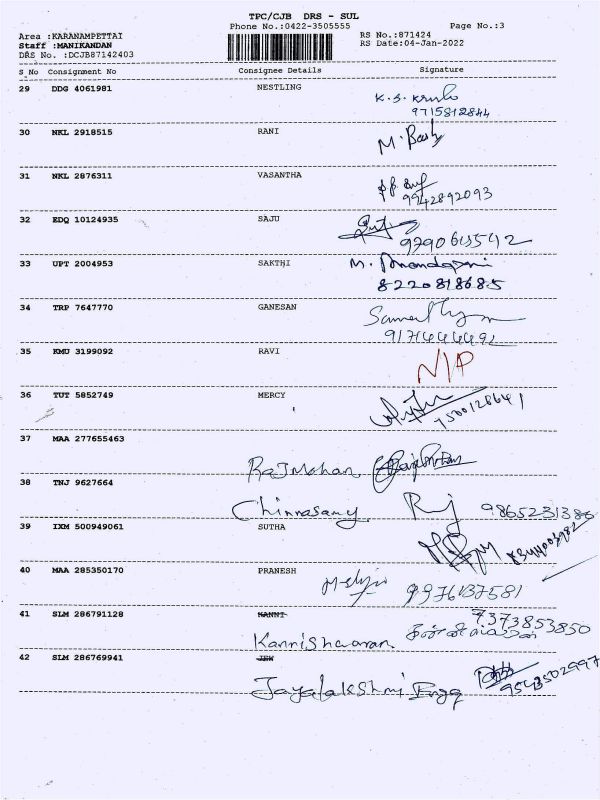 TPC/CJB DRS - SUL
Phone No.:0422-3505555 Page No.:3
Area :KARANAMPETTAI RS No.:871424
Staff :MANIKANDAN RS Date:04-Jan-2022
DRS No. :DCJB87142403
S_No Consignment No Consignee Details Signature
29 DDG 4061981 NESTLING
9715812844
30 NKL 2918515 RANI
M.
31 NKL 2876311 VASANTHA
9942892093
32 EDQ 10124935 SAJU
33 UPT 2004953 SAKTHI M.
8220818685
34 TRP 7647770 GANESAN
35 KMU 3199092 RAVI N/P
36 TUT 5852749 MERCY
37 MAA 277655463
RajMohan
38 TNJ 9627664
Chinnasamy 9865231386
39 IXM 500949061 SUTHA
40 MAA 285350170 PRANESH
9976137581
41 SLM 286791128 KANNI 7373853850
Kannishwaran
42 SLM 286769941 JEW
Jayalakshmi Engg 9543502997